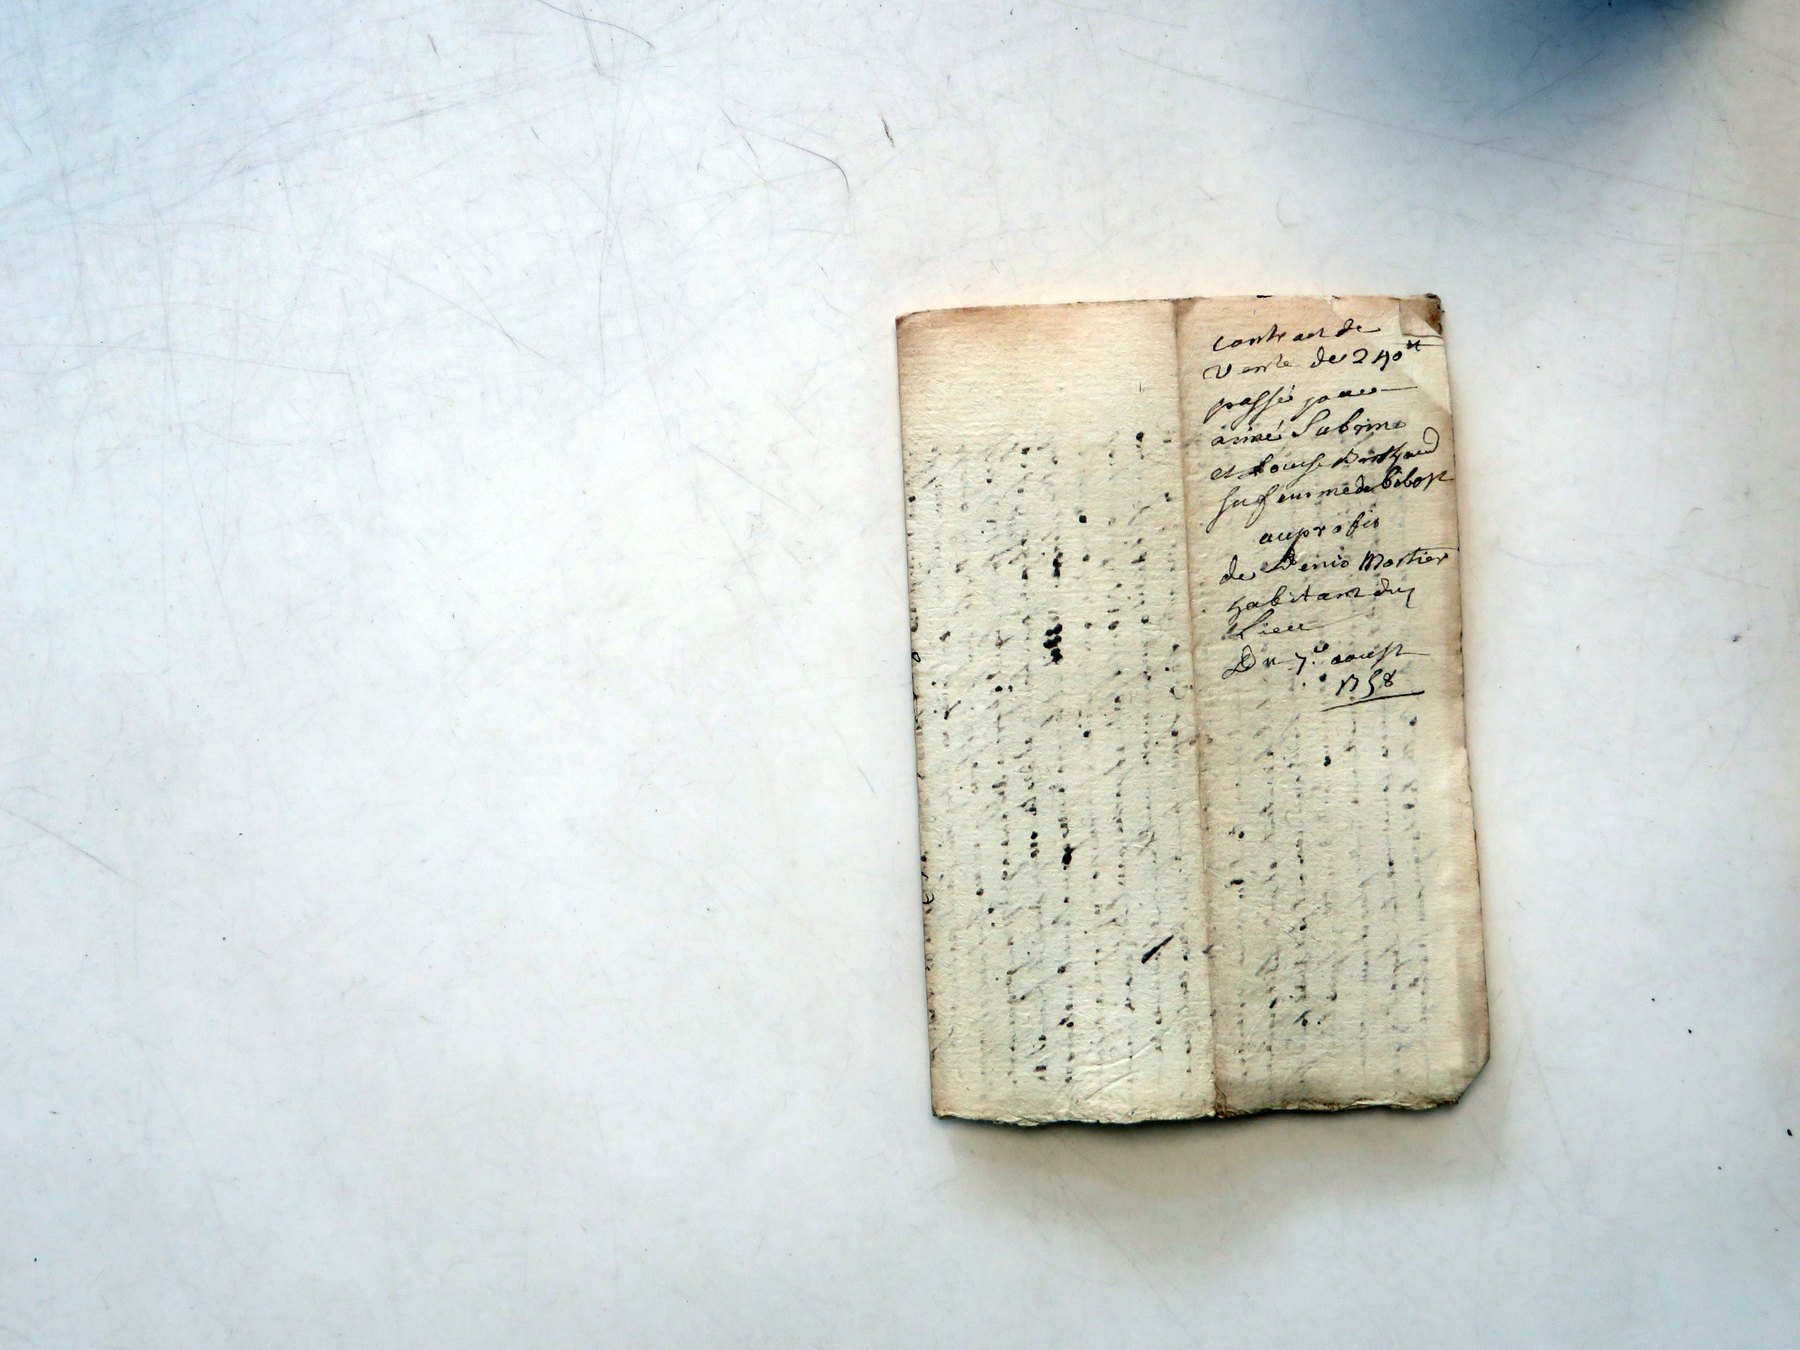 contract de
vente de 240ᵗᵗ
passé par
aimé Subrin
et Louise
sa femme de bibost
au profit
de Denis Mortier
habitant dud
Lieu
Du 7ᵉ aoust
1758